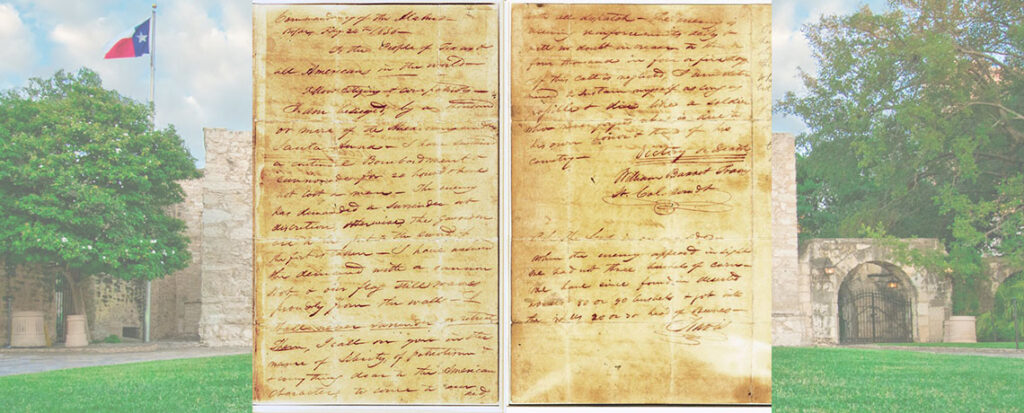 Commandancy of the Alamo—
Bejar, Fby. 24th 1836—
To the People of Texas &
all Americans in the world—
Fellow citizens & compatriots—
I am besieged, by a thousand
or more of the Mexicans under
Santa Anna — I have sustained
a continual Bombardment &
cannonade for 24 hours & have
not lost a man — The enemy
has demanded a surrender at
discretion, otherwise, the garrison
are to be put to the sword, if
the fort is taken — I have answered
the demand with a cannon
shot, & our flag still waves
proudly from the wall — I
shall never surrender or retreat
Then, I call on you in the
name of Liberty, of patriotism &
everything dear to the American
character, to come to our aid,
with all dispatch — The enemy is
receiving reinforcements daily &
will no doubt increase to three or
four thousand in four or five days.
If this call is neglected, I am deter
mined to sustain myself as long as
possible & die like a soldier
who never forgets what is due to
his own honor & that of his
country —
Victory or Death
William Barret Travis
Lt. Col. comdt
P.S. The Lord is on our side—
When the enemy appeared in sight
we had not three bushels of corn—
We have since found in deserted
houses 80 or 90 bushels & got into
the walls 20 or 30 head of Beeves—
Travis